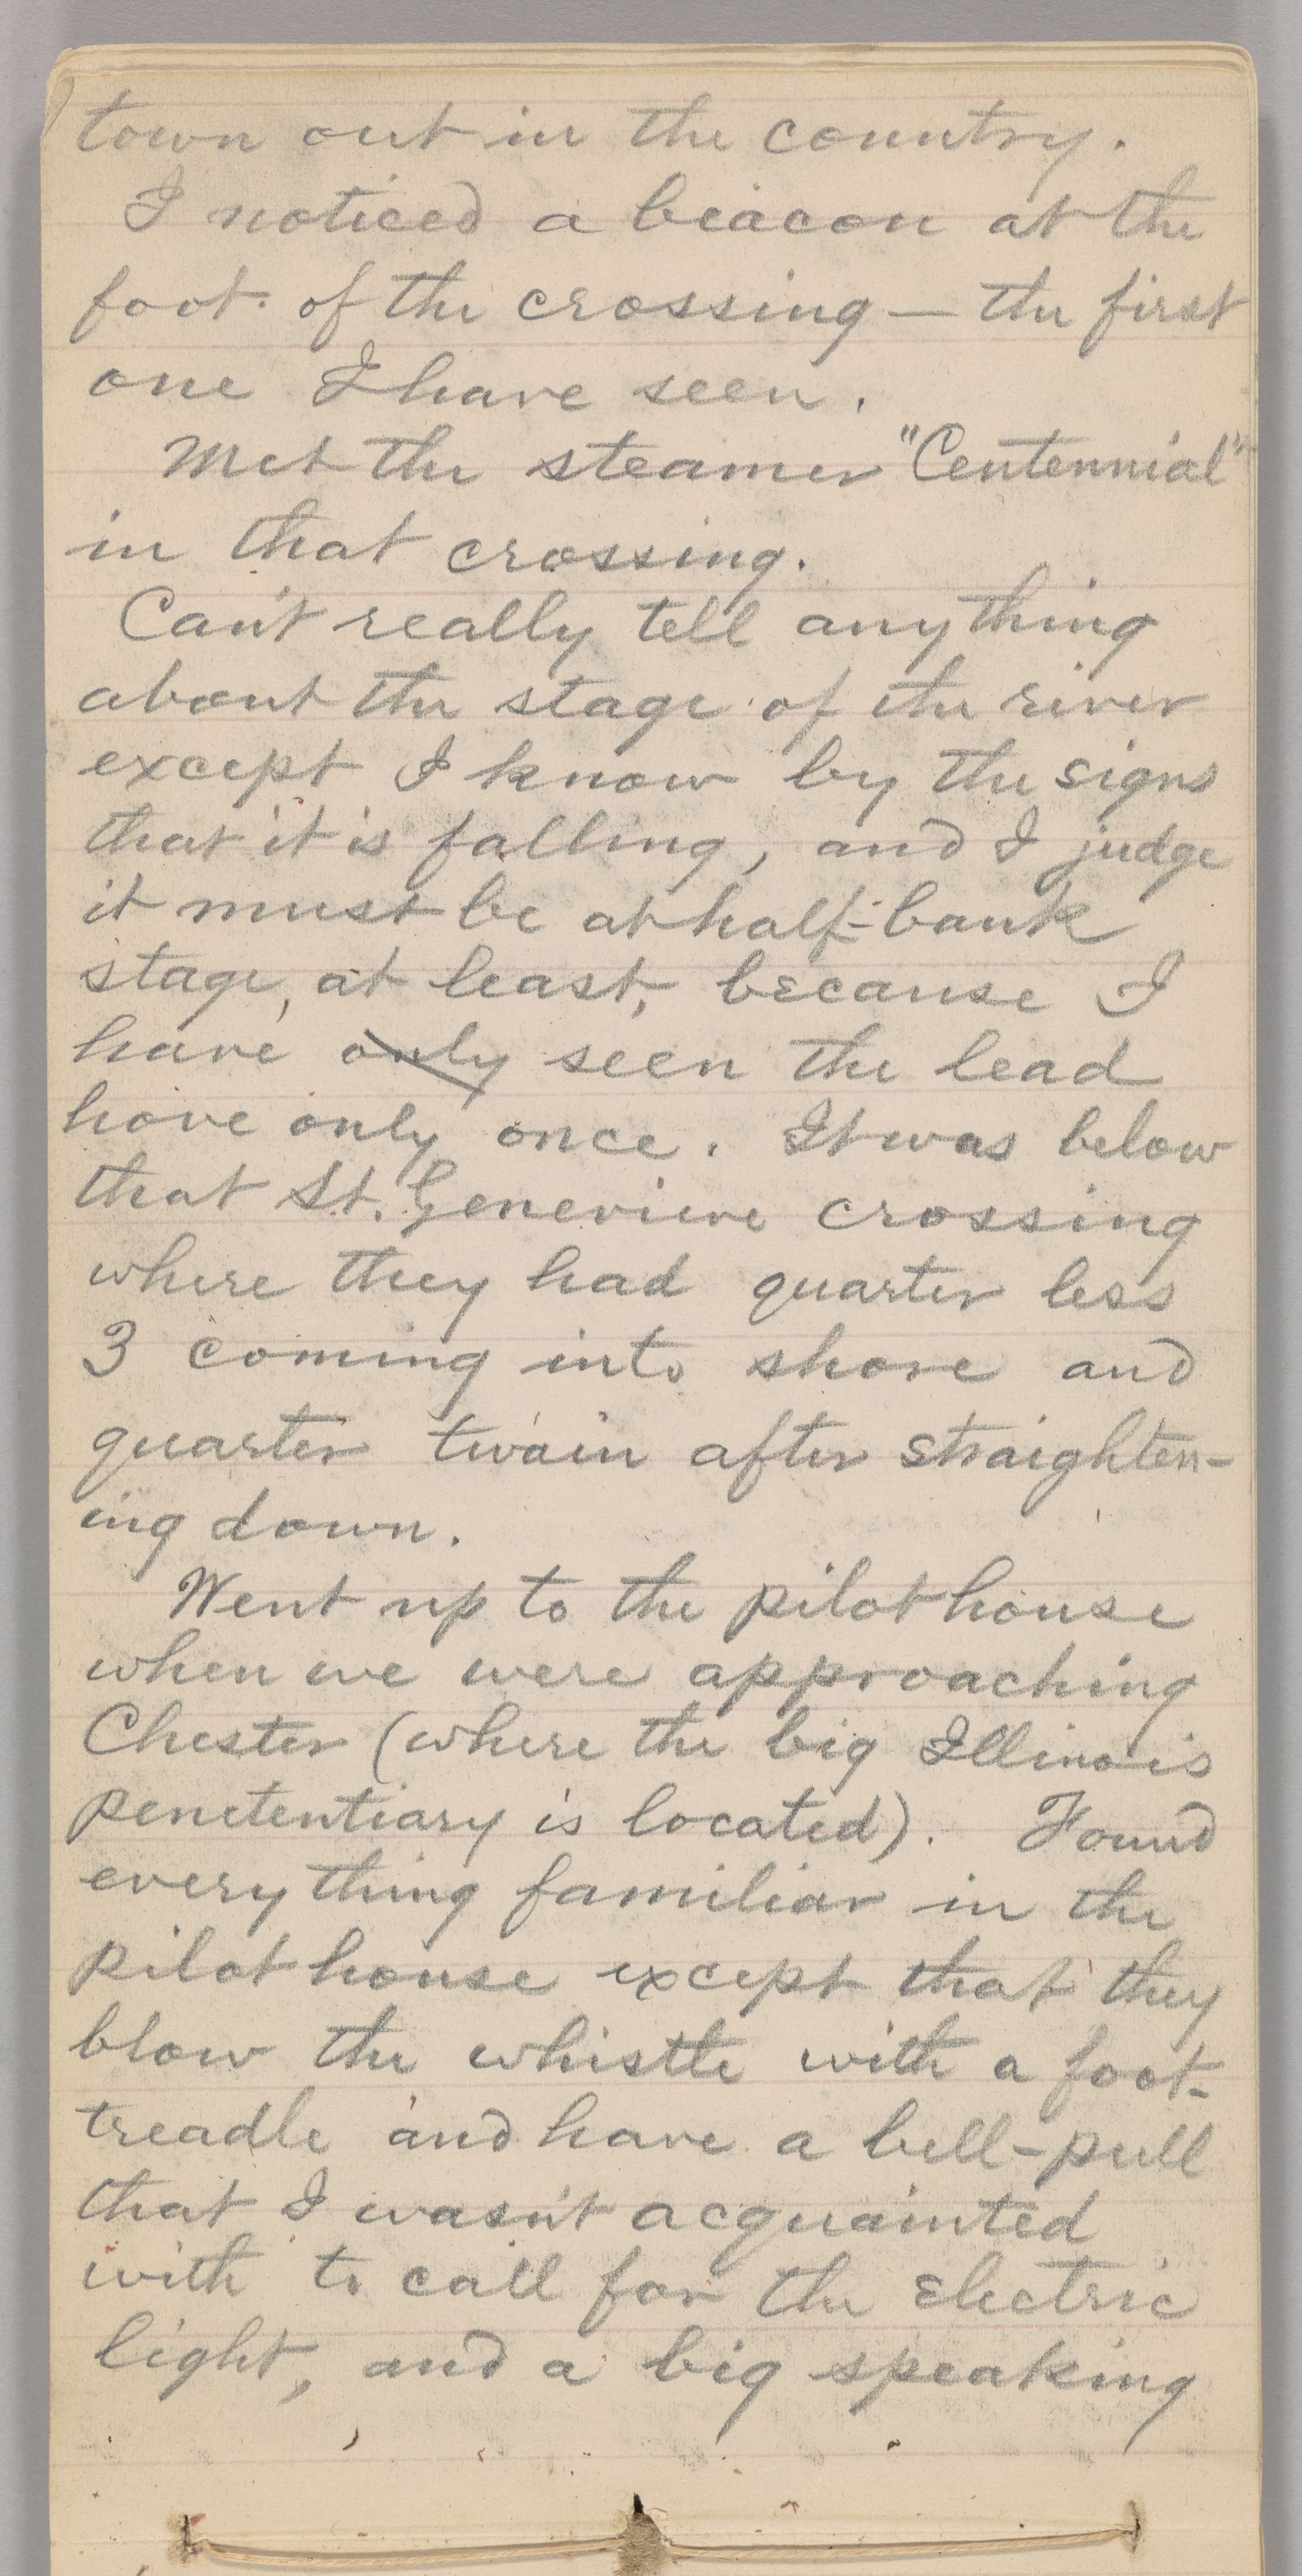 town out in the country.
I noticed a beacon at the
foot of the crossing — the first
one I have seen.
Met the steamer "Centennial"
in that crossing.
Can't really tell anything
about the stage of the river
except I know by the signs
that it is falling, and I judge
it must be at half-bank
stage, at least, because I
have only seen the lead
hove only once. It was below
that St. Genevieve crossing
where they had quarter less
3 coming into shore and
quarter twain after straighten-
ing down.
Went up to the pilot house
when we were approaching
Chester (where the big Illinois
penetentiary is located). Found
everything familiar in the
pilot house except that they
blow the whistle with a foot-
treadle and have a bell-pull
that I wasn't acquainted
with to call for the electric
light, and a big speaking